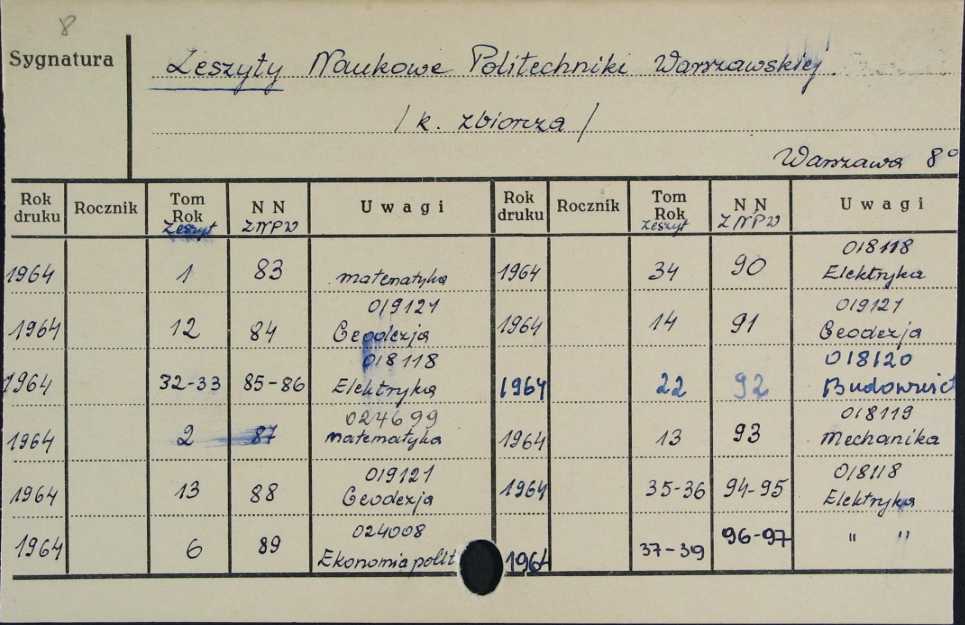 8
Sygnatura
Zeszyty Naukowe Politechniki Warszawskiej
/ k. zbiorcza /
Warszawa 8°
Rok druku Rocznik Tom Rok Zeszyt N N ZNPW Uwagi Rok druku Rocznik Tom Rok Zeszyt N N ZNPW Uwagi
1964 1 83 matematyka 1964 34 90 018118 Elektryka
1964 12 84 019121 Geodezja 1964 14 91 019121 Geodezja
1964 32-33 85-86 018118 Elektryka 1964 22 92 018120 Budownict
1964 2 87 024699 matematyka 1964 13 93 018119 Mechanika
1964 13 88 019121 Geodezja 1964 35-36 94-95 018118 Elektryka
1964 6 89 024008 Ekonomia polit 1964 37-39 96-97 " "